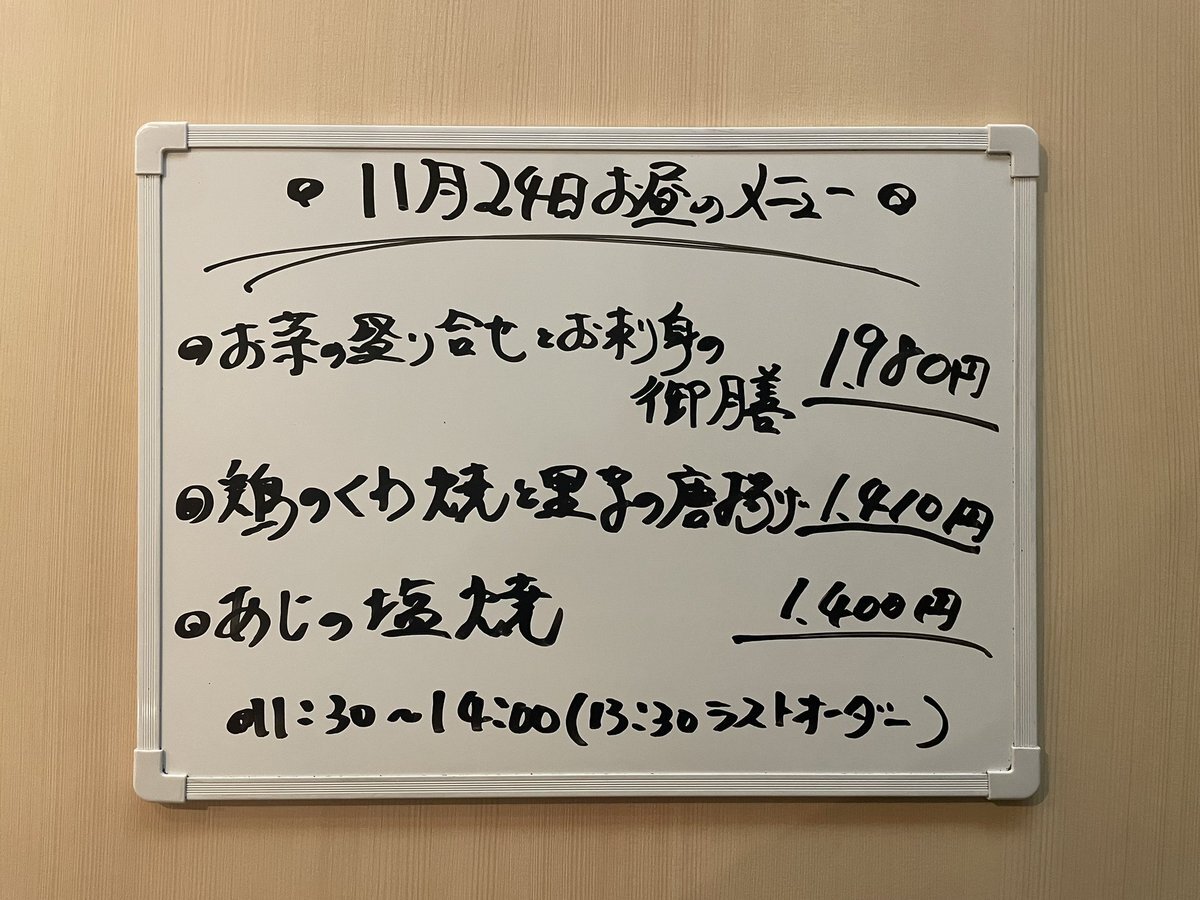 • 11月24日お昼のメニュー •
• お菜の盛り合せとお刺身の
御膳 1.980円
• 鶏のくわ焼と里芋の唐揚げ 1.410円
• あじの塩焼 1.400円
• 11:30~14:00(13:30ラストオーダー)